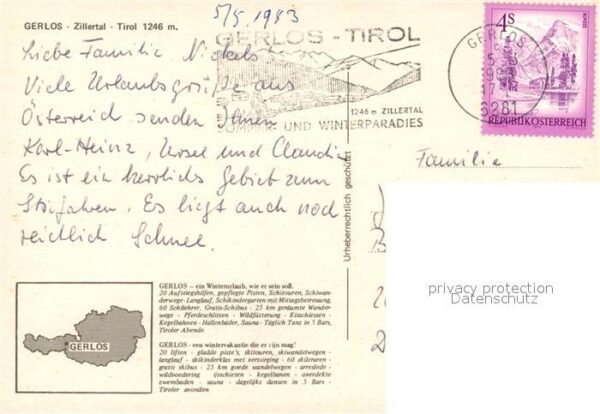 5/5.1983
GERLOS - Zillertal - Tirol 1246 m.
GERLOS - TIROL
1246 m ZILLERTAL
SOMMER- UND WINTERPARADIES
GERLOS
6281
4S
REPUBLIK ÖSTERREICH
Liebe Familie Nickels
Viele Urlaubsgrüße aus
Österreich senden Ihnen
Karl-Heinz, Ursel und Claudia
Es ist ein herrliches Gebiet zum
Skifahren. Es liegt auch noch
reichlich Schnee.
Familie
Urheberrechtlich geschützt
privacy protection
Datenschutz
GERLOS
GERLOS – ein Winterurlaub, wie er sein soll.
20 Aufstiegshilfen, gepflegte Pisten, Schitouren, Schiwan-
derwege - Langlauf, Schikindergarten mit Mittagsbetreuung,
60 Schilehrer, Gratis-Schibus - 25 km geräumte Wander-
wege - Pferdeschlitten - Wildfütterung - Eisschiessen -
Kegelbahnen - Hallenbäder, Sauna - Täglich Tanz in 5 Bars,
Tiroler Abende.
GERLOS - een wintervakantie die er zijn mag!
20 liften - gladde piste's, skitouren, skiwandelwegen
- langlauf - skikinderklas met verzorging - 60 skileraren -
gratis skibus - 25 km goede wandelwegen - arreslede -
wildvoedering - ijsschieten - kegelbanen - overdekte
zwembaden - sauna - dagelijks dansen in 5 Bars -
Tiroler avonden